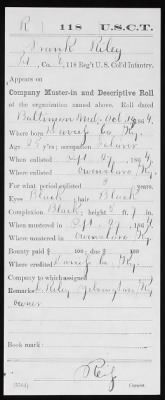 R | 118 | U.S.C.T.
Frank Riley
Co. , 118 Reg't U.S. Col'd Infantry.
Appears on
Company Muster-in and Descriptive Roll
of the organization named above. Roll dated
Baltimore Md. Oct 1864.
Where born Daviess Co, Ky.
Age y'rs; occupation Laborer
When enlisted Sept , 1864.
Where enlisted Owensboro Ky.
For what period enlisted 3 years.
Eyes Black; hair Black
Complexion Black; height 5 ft. in.
When mustered in Sept , 1864
Where mustered in Owensboro, Ky.
Bounty paid $ 100; due $ 100
Where credited Daviess Co, Ky
Company to which assigned
Remarks: Riley , Ky
owner
Book mark: